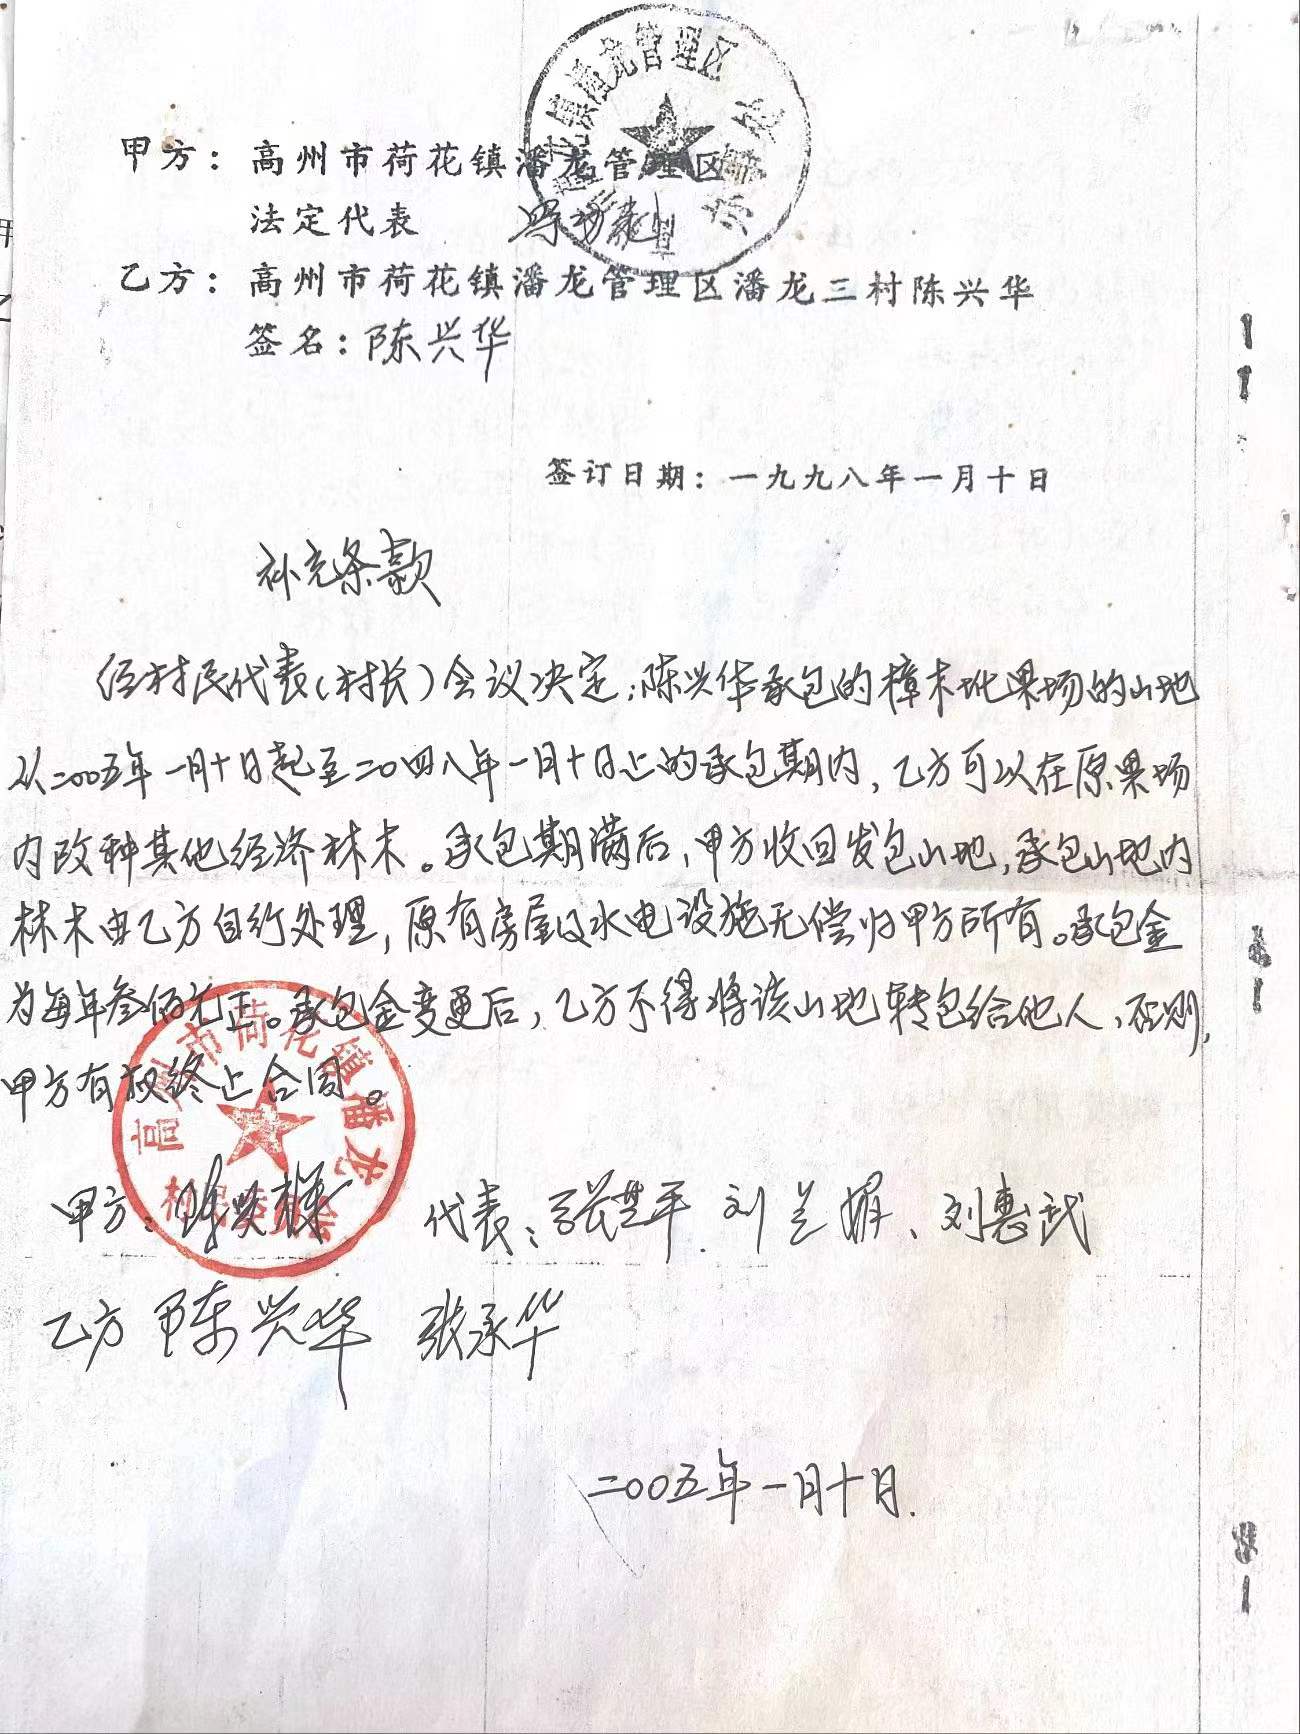 甲方：高州市荷花镇潘龙管理区
法定代表
乙方：高州市荷花镇潘龙管理区潘龙三村陈兴华
签名：陈兴华
签订日期：一九九八年一月十日
补充条款
经村民代表(村长)会议决定：陈兴华承包的樟木坉果场的山地
从二00五年一月十日起至二0四八年一月十日止的承包期内，乙方可以在原果场
内改种其他经济林木。承包期满后，甲方收回发包山地，承包山地内
林木由乙方自行处理，原有房屋及水电设施无偿归甲方所有。承包金
为每年叁佰元正。承包金变更后，乙方不得将该山地转包给他人，否则，
甲方有权终止合同。
高州市荷花镇潘龙
甲方： 代表：张芝平、刘兰娟、刘惠武
乙方 陈兴华 张承华
二00五年一月十日.